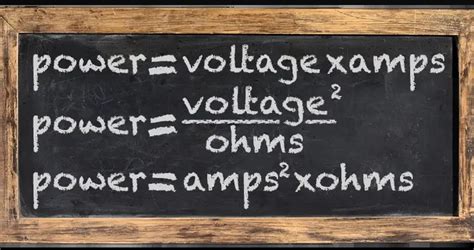 power=voltagexamps
power=voltage²
ohms
power=amps²xohms